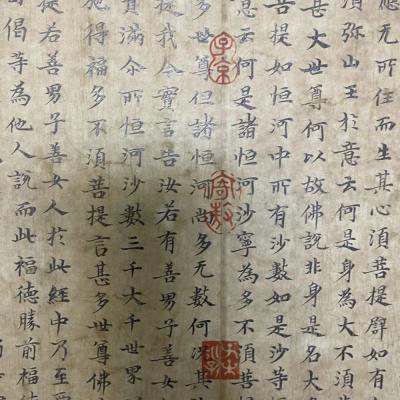 應无所住而生其心須菩提譬如有
須弥山王於意云何是身為大不須
甚大世尊何以故佛説非身是名大
菩提如恒河中所有沙數如是沙等
意云何是諸恒河沙寧為多不須菩
多世尊但諸恒河尚多无數何況其
提我今實言告汝若有善男子善女
滿尒所恒河沙數三千大千世界
施得福多不須菩提言甚多世尊佛
若善男子善女人於此經中乃至受
偈等為他人説而此福德勝前福德
子京